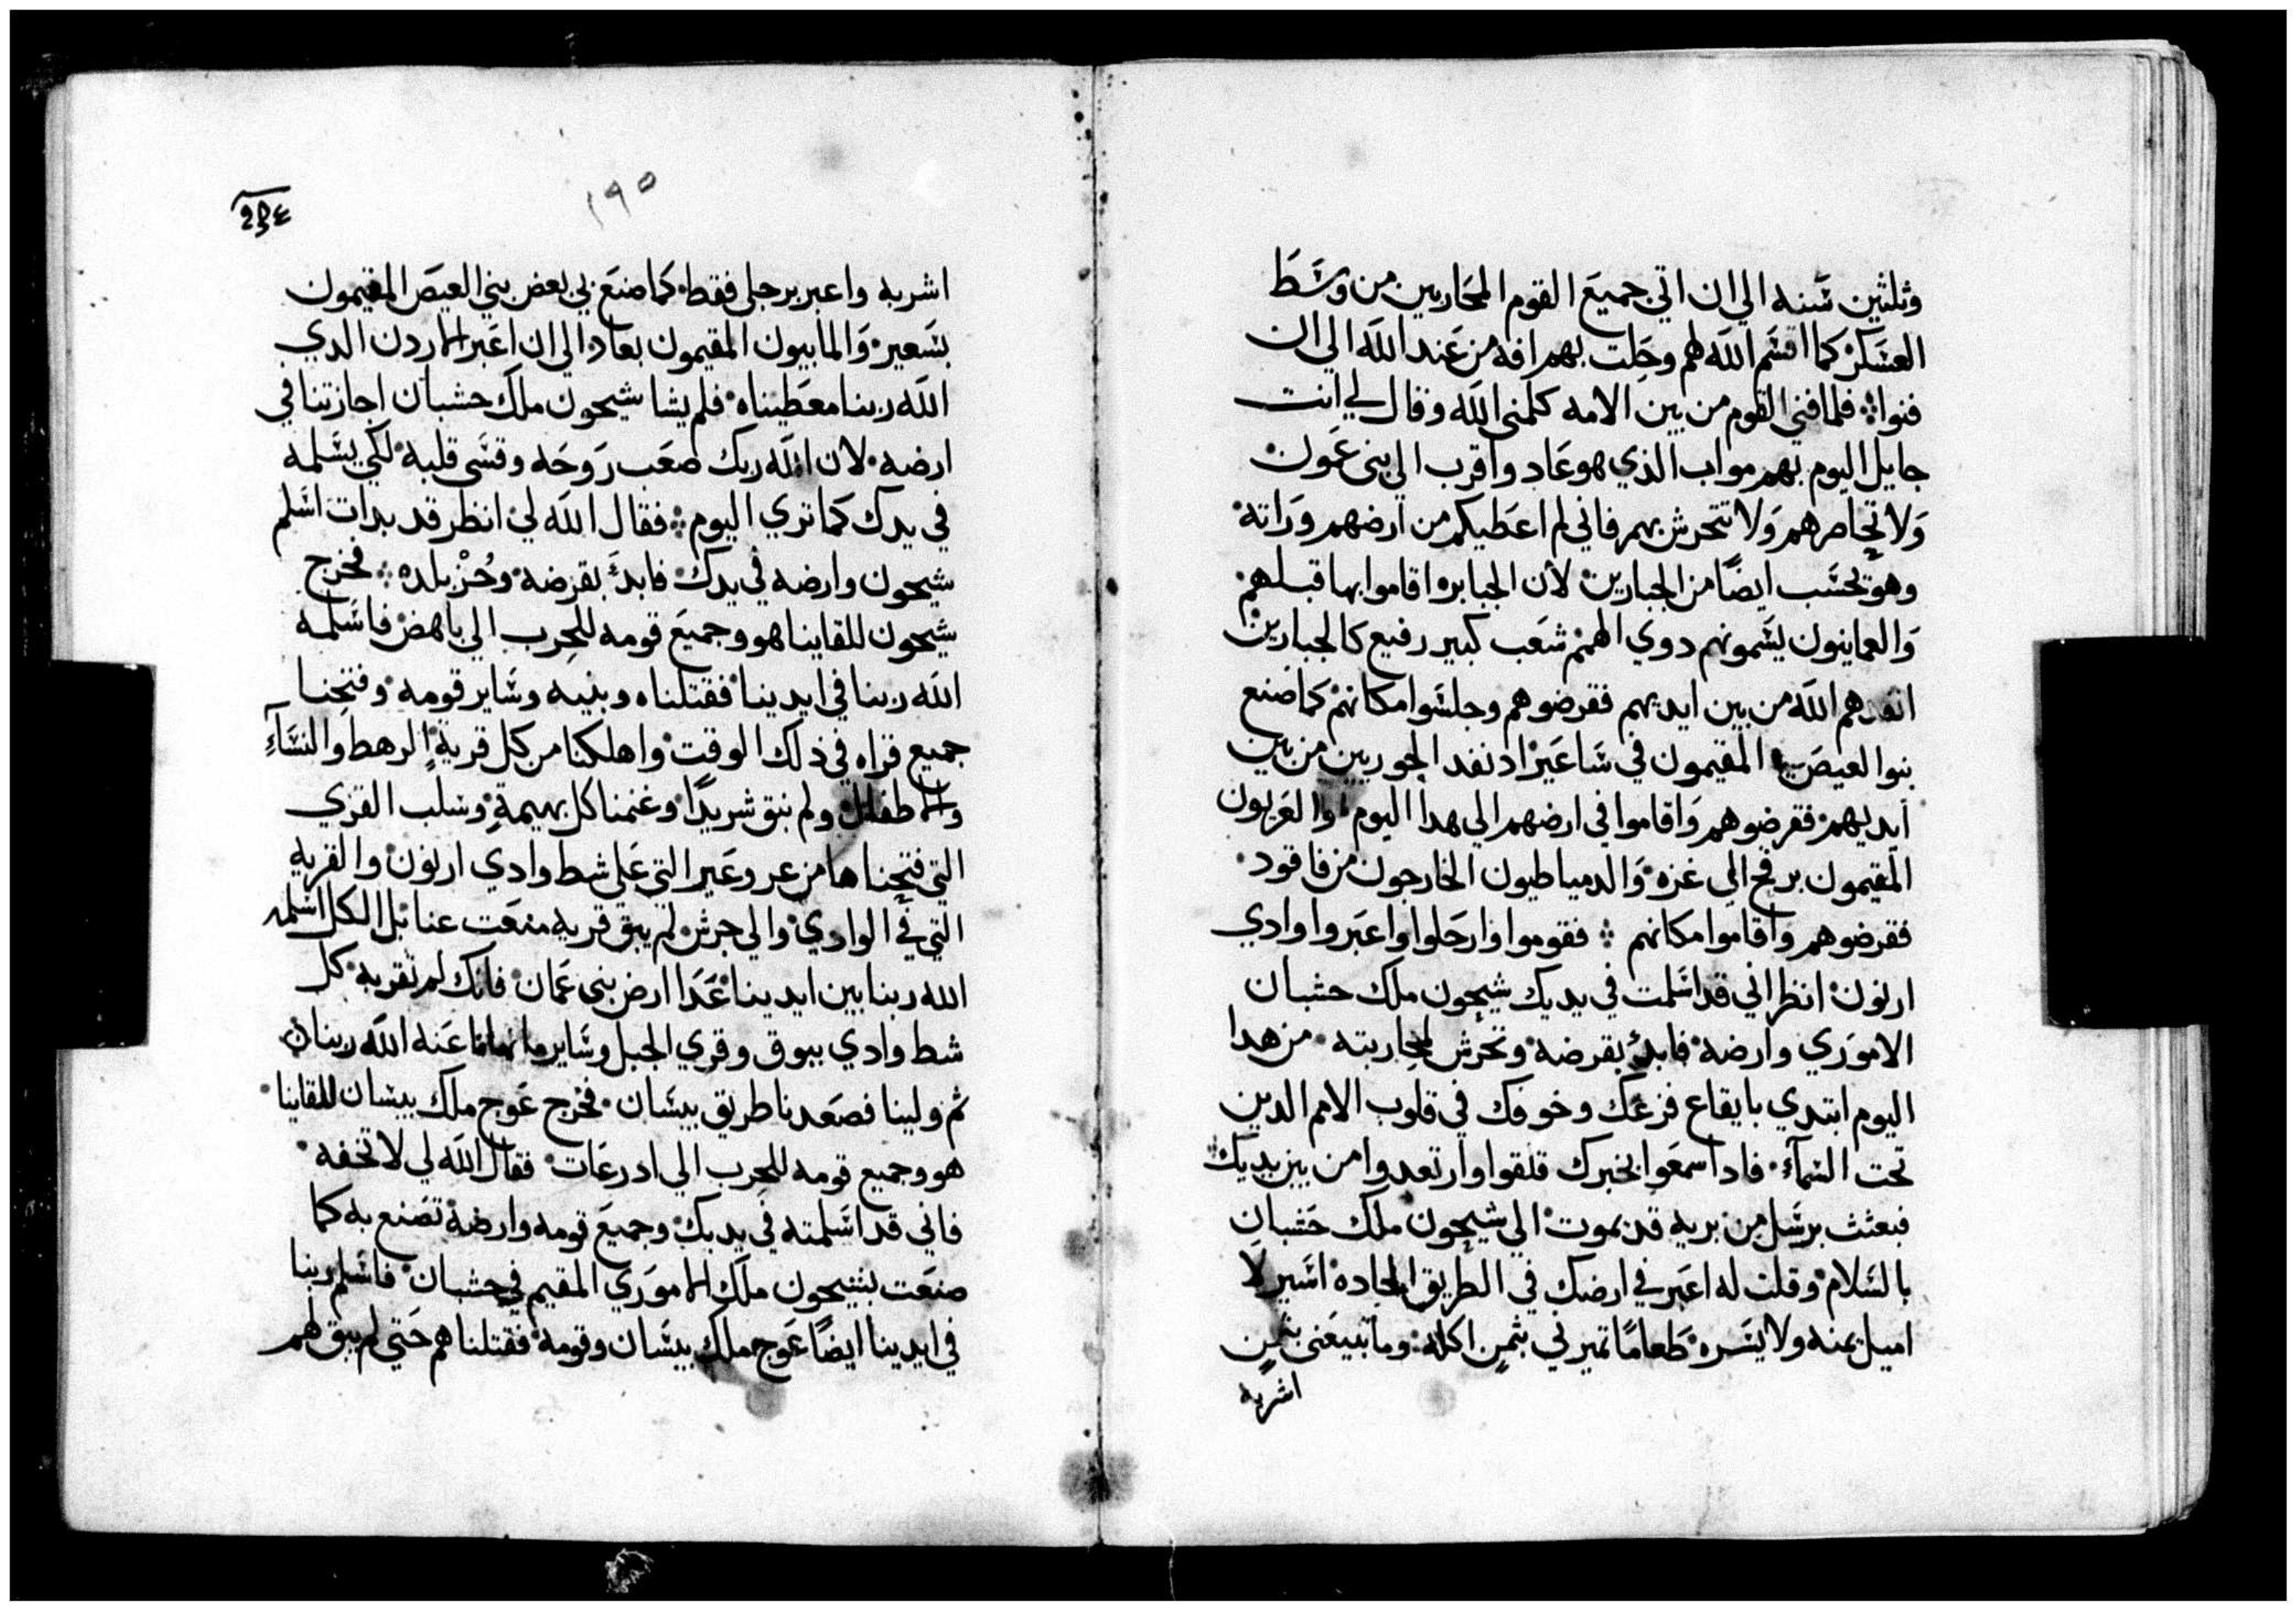 وثلثين سنه الي ان اتي جميع القوم المحاربين من وسط
العسكر كما اقسم الله لهم وحلت بهم افه من عند الله الي ان
فنوا فلما فني القوم من بين الامه كلمني الله وقال لي انت
جايل اليوم بهم مواب الذي هو عاد واقرب الي بني عمون
ولا تحاصرهم ولا تتحرش بهم فاني لم اعطيكم من ارضهم وراته
وهو تحسب ايضًا من الجبارين لان الجبابره اقاموا بها قبلهم
والعمانيون يسمونهم دوي الهمم شعب كبير رفيع كالجبارين
انفدهم الله من بين ايديهم فقرضوهم وجلسوا مكانهم كما صنع
بنوا العيص المقيمون في ساعير اد نفد الحوريين من بين
ايديهم فقرضوهم واقاموا في ارضهم الي هدا اليوم والغزيون
المقيمون برفح الي غزه والدمياطيون الخارجون من فاقود
فقرضوهم واقاموا مكانهم فقوموا وارحلوا واعبروا وادي
ارنون انظر اني قد اسلمت في يديك شيحون ملك حشبان
الاموري وارضه فابدئ بقرضه وتحرش لمحاربته من هدا
اليوم ابتدي بايقاع فزعك وخوفك في قلوب الامم الدين
تحت السمآء فادا سمعوا بخبرك قلقوا وارتعدوا من بين يديك
فبعثت برسل من بريه قديموت الي شيحون ملك حشبان
بالسلام وقلت له اعبر في ارضك في الطريق الجاده اسير لا
اميل يمنه ولا يسره طعامًا تميرني بثمن اكله وما تبيعني بثمن
اشربه
١٩٥
اشربه واعبر برجلي فقط كما صنع بي بعض بني العيص المقيمون
بسعير والمابيون المقيمون بعاد الي ان اعبر الاردن الدي
الله ربنا معطيناه فلم يشا شيحون ملك حشبان اجازتنا في
ارضه لان الله ربك صعب روحه وقسي قلبه لكي يسلمه
في يدك كما تري اليوم فقال الله لي انظر قد بدات اسلم
شيحون وارضه في يدك فابدئ بقرضه وحُزْ بلده فخرج
شيحون للقاينا هو وجميع قومه للحرب الي ياهض فاسلمه
الله ربنا في ايدينا فقتلناه وبنيه وساير قومه وفتحنا
جميع قراه في ذلك الوقت واهلكنا من كل قرية الرهط والنسآءِ
والاطفال ولم نبق شريدًا وغنمنا كل بهيمةٍ وسلب القري
التي فتحناها من عروعير التي علي شط وادي ارنون والقريه
التي في الوادي والي جرش لم يبق قريه منعت عنا بل الكل اسلمه
الله ربنا بين ايدينا عدا ارض بني عمان فانك لم تقربه كل
شط وادي يبوق وقري الجبل وساير ما نهانا عنه الله ربنا
ثم ولينا فصعدنا طريق بيسان فخرج عوج ملك بيسان للقاينا
هو وجميع قومه للحرب الي ادرعات فقال الله لي لا تخفه
فاني قد اسلمته في يديك وجميع قومه وارضه تصنع به كما
صنعت بشيحون ملك الاموري المقيم في حشبان فاسلم ربنا
في ايدينا ايضًا عوج ملك بيسان وقومه فقتلناهم حتي لم يبق لهم